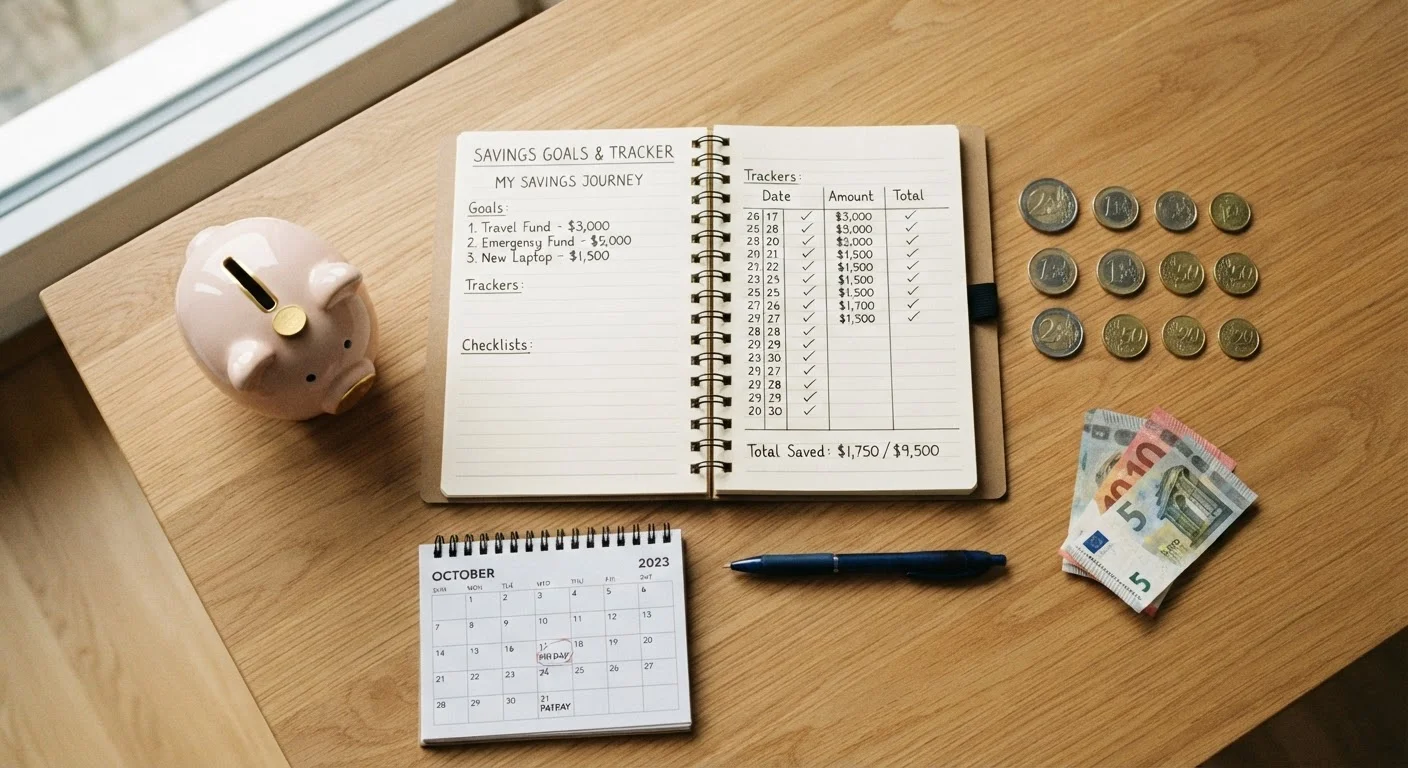 SAVINGS GOALS & TRACKER
MY SAVINGS JOURNEY
Goals:
1. Travel Fund - $3,000
2. Emergensy Fund - $5,000
3. New Laptop - $1,500
Trackers:
Checklists:
Trackers:
Date Amount Total
26 17 ✓ $3,000 ✓
25 28 ✓ $3,000 ✓
28 20 ✓ $3,000 ✓
20 21 ✓ $1,500 ✓
21 22 ✓ $1,500 ✓
23 24 ✓ $1,500 ✓
25 25 ✓ $1,500 ✓
27 26 ✓ $1,700 ✓
29 27 ✓ $1,300 ✓
28 28 ✓
29 29 ✓
23 30 ✓
29 27 ✓
29 28 ✓
29 29 ✓
20 30 ✓
Total Saved: $1,750 / $9,500
OCTOBER 2023
MON WED THU
1 2 3 4 5 6
7 8 9 10 11 12 13
14 13 16 18 19 20
21 22 23 24 25 26 27
28 29 30 21
PATPAY
2 1 1
1 1 50 50
2 50 20 20
10 10
5
5